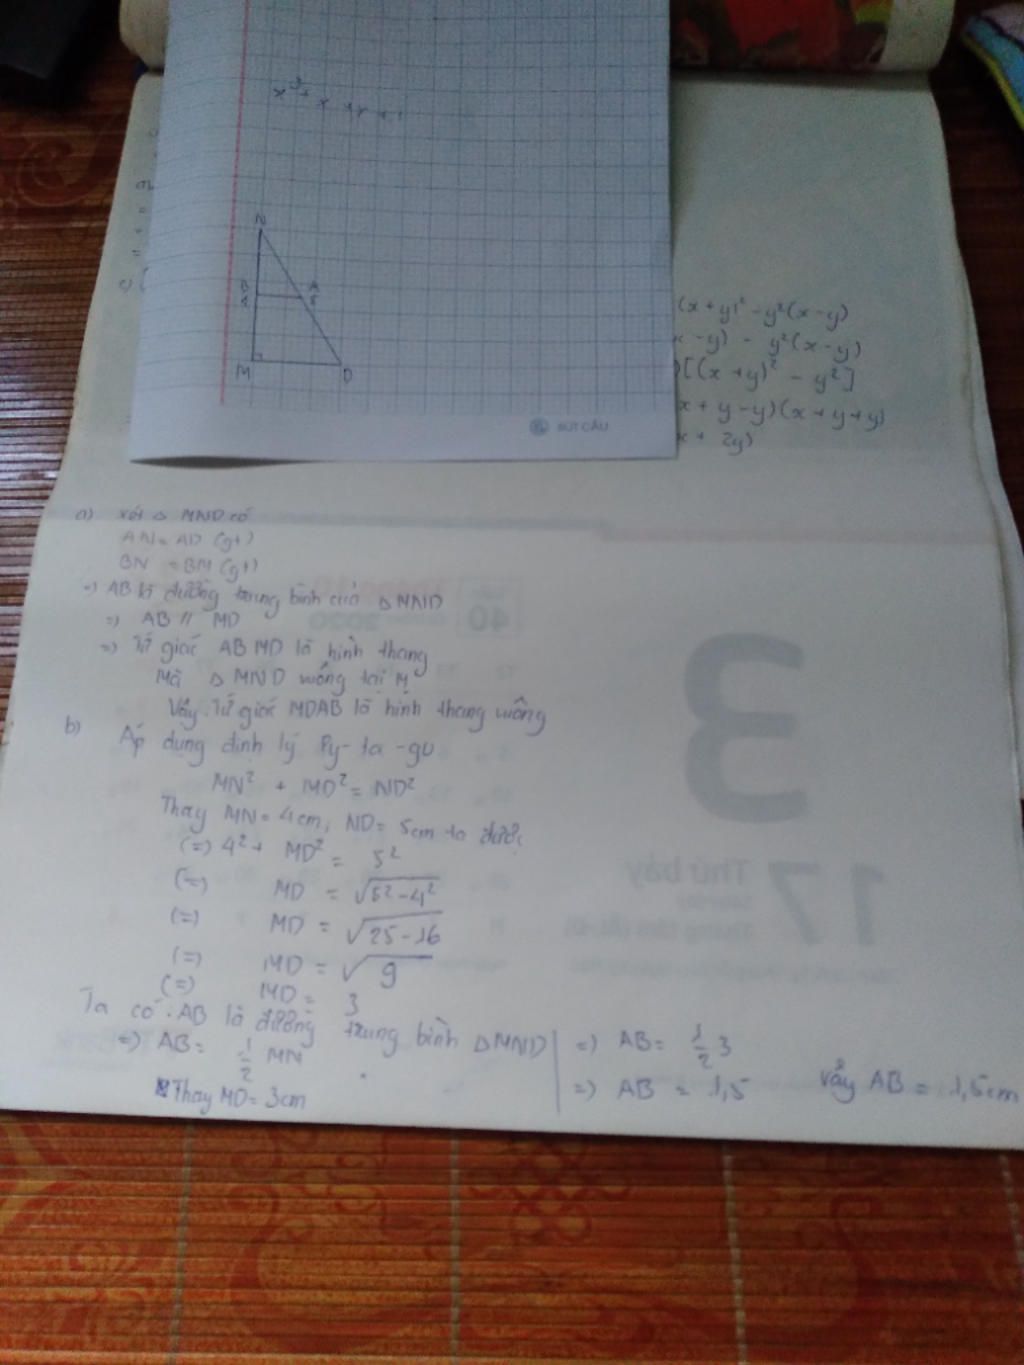 x³ + x + x + 1
N
B
A
M
D
BÚT CẦU
(x + y)² - y²(x - y)
x - y) - y²(x - y)
)[(x + y)² - y²]
x + y - y)(x + y + y)
x + 2y)
a) xét Δ MND có
AN = AD (gt)
BN = BM (gt)
=) AB là đường trung bình của Δ MND
=) AB // MD
=) Tứ giác ABMD là hình thang
Mà Δ MND vuông tại M
Vậy. Tứ giác MDAB là hình thang vuông
b) Áp dụng định lý Py-ta-go
MN² + MD² = ND²
Thay MN = 4cm, ND = 5cm ta được
(=) 4² + MD² = 5²
(=) MD = √5² - 4²
(=) MD = √25 - 16
(=) MD = √9
(=) MD = 3
Ta có: AB là đường trung bình Δ MND
=) AB = 1/2 MN
Thay MD = 3cm
=) AB = 1/2 3
=) AB = 1,5
Vậy AB = 1,5cm
40
2020
3
17
Thứ bảy